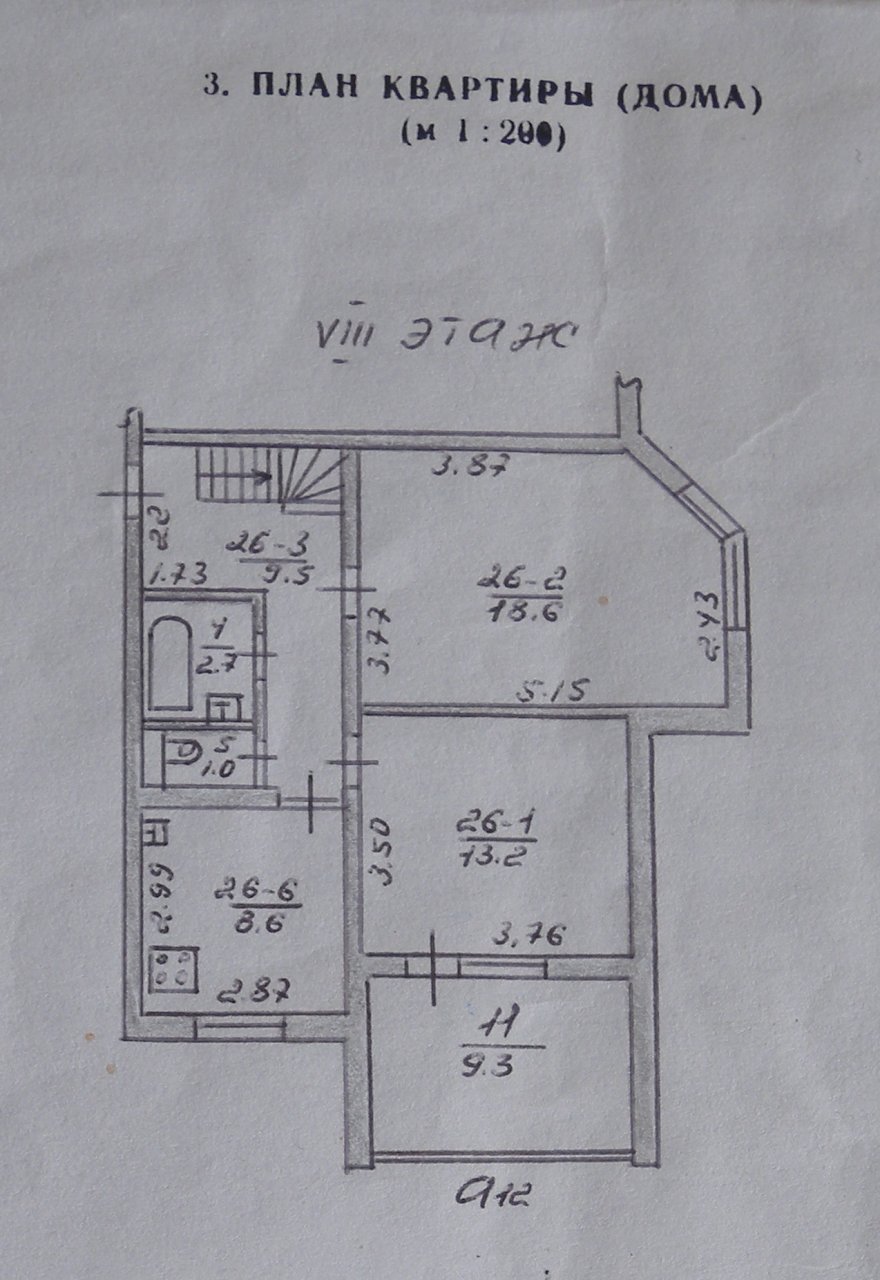 3. ПЛАН КВАРТИРЫ (ДОМА)
(м 1:200)
VIII ЭТАЖ
3.87
2.2
26-3
9.5
1.73
26-2
18.6
2.43
4
2.7
3.77
5.15
5
1.0
26-1
13.2
3.50
2.99
26-6
8.6
3,76
2.87
11
9.3
а12